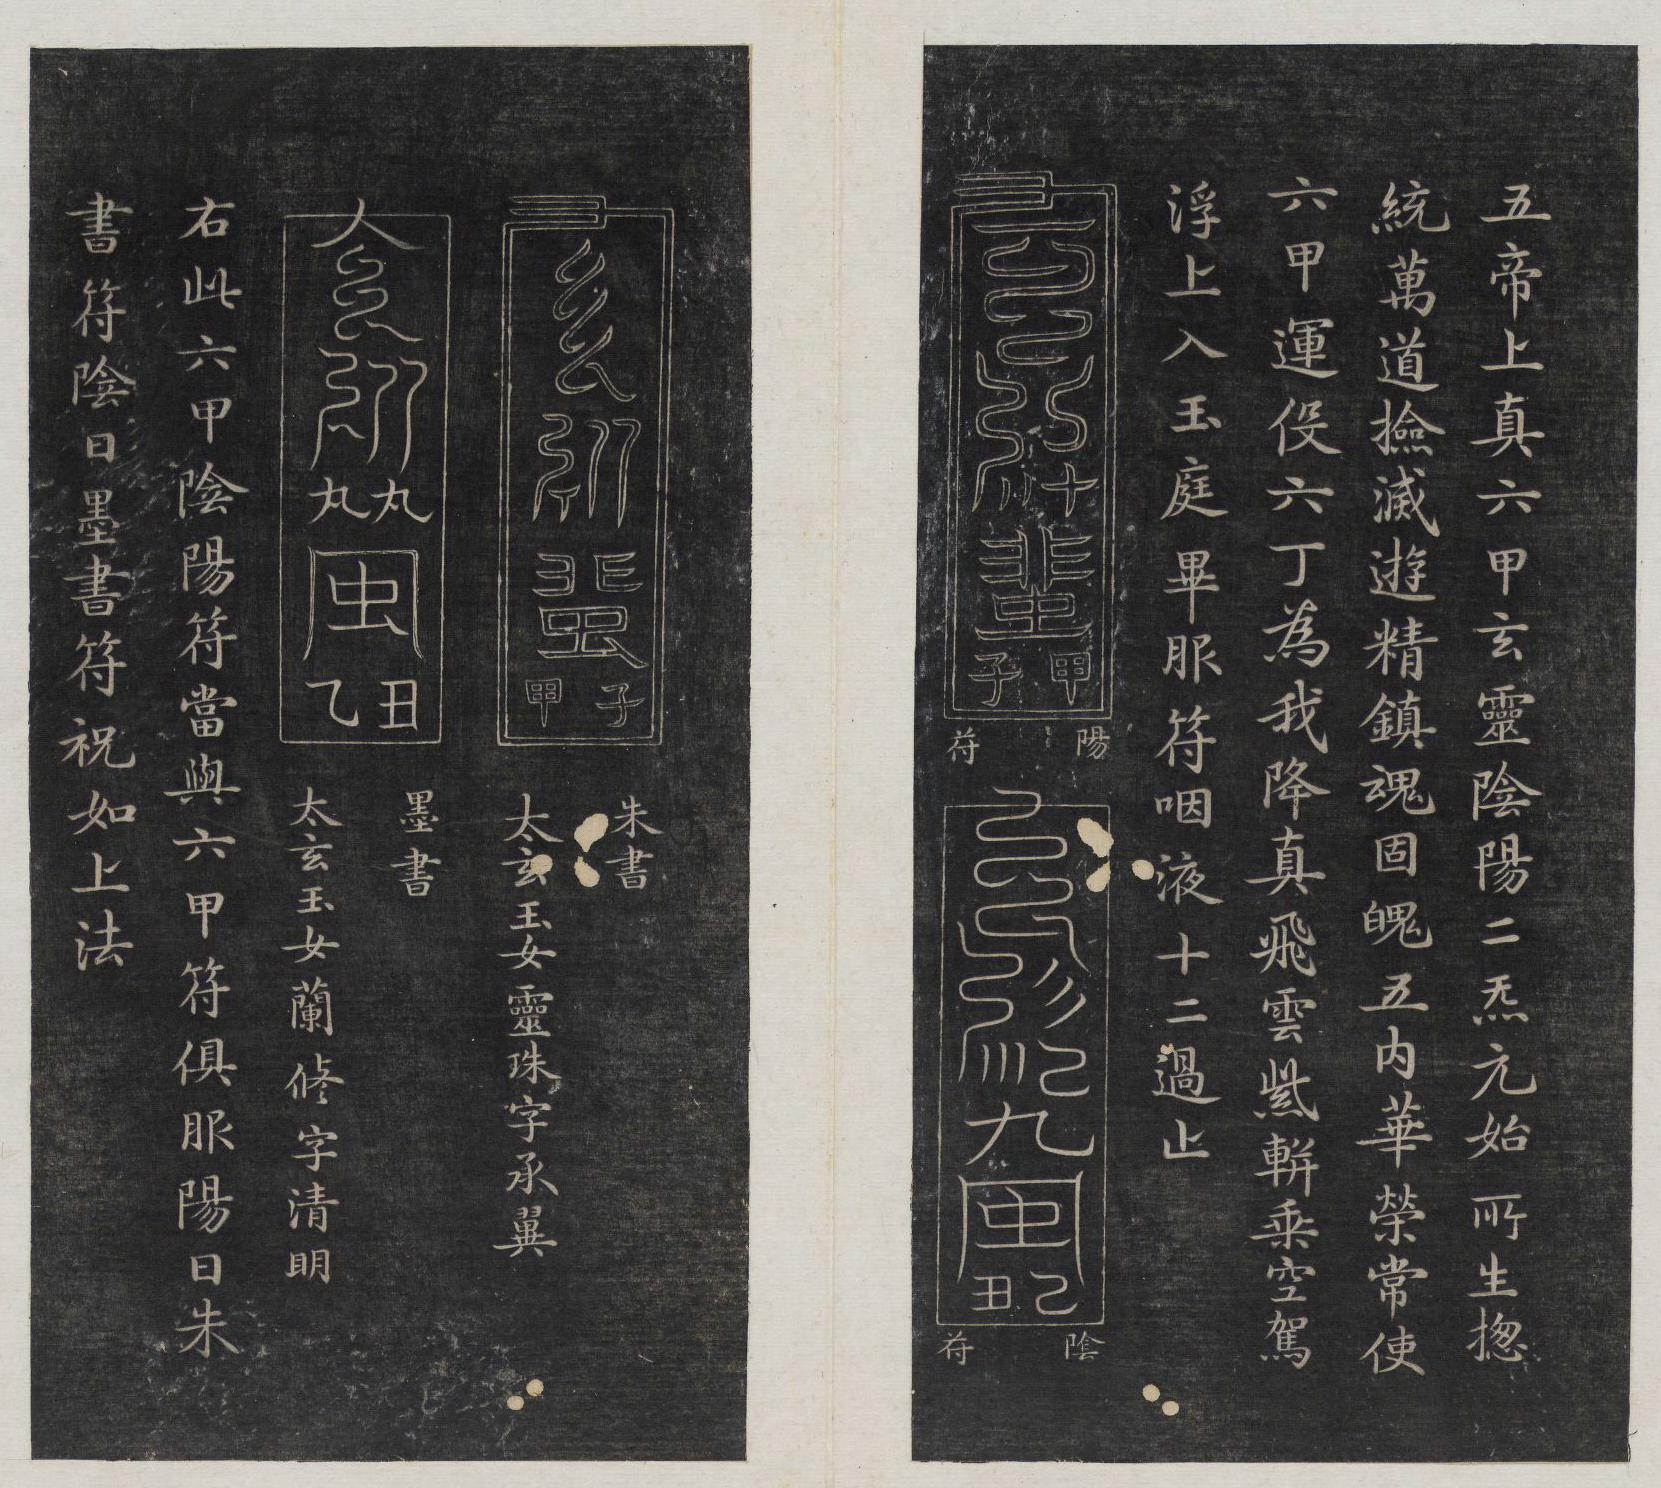 五帝上真六甲玄靈陰陽二炁元始所生揔
統萬道撿滅遊精鎮魂固魄五内華榮常使
六甲運役六丁為我降真飛雲紫軿乘空駕
浮上入玉庭畢服符咽液十二過止
甲子
陽符
九
己丑
陰符
子甲
朱書
太玄玉女靈珠字承翼
丑乙
墨書
太玄玉女蘭修字清明
右此六甲陰陽符當與六甲符俱服陽日朱
書符陰日墨書符祝如上法